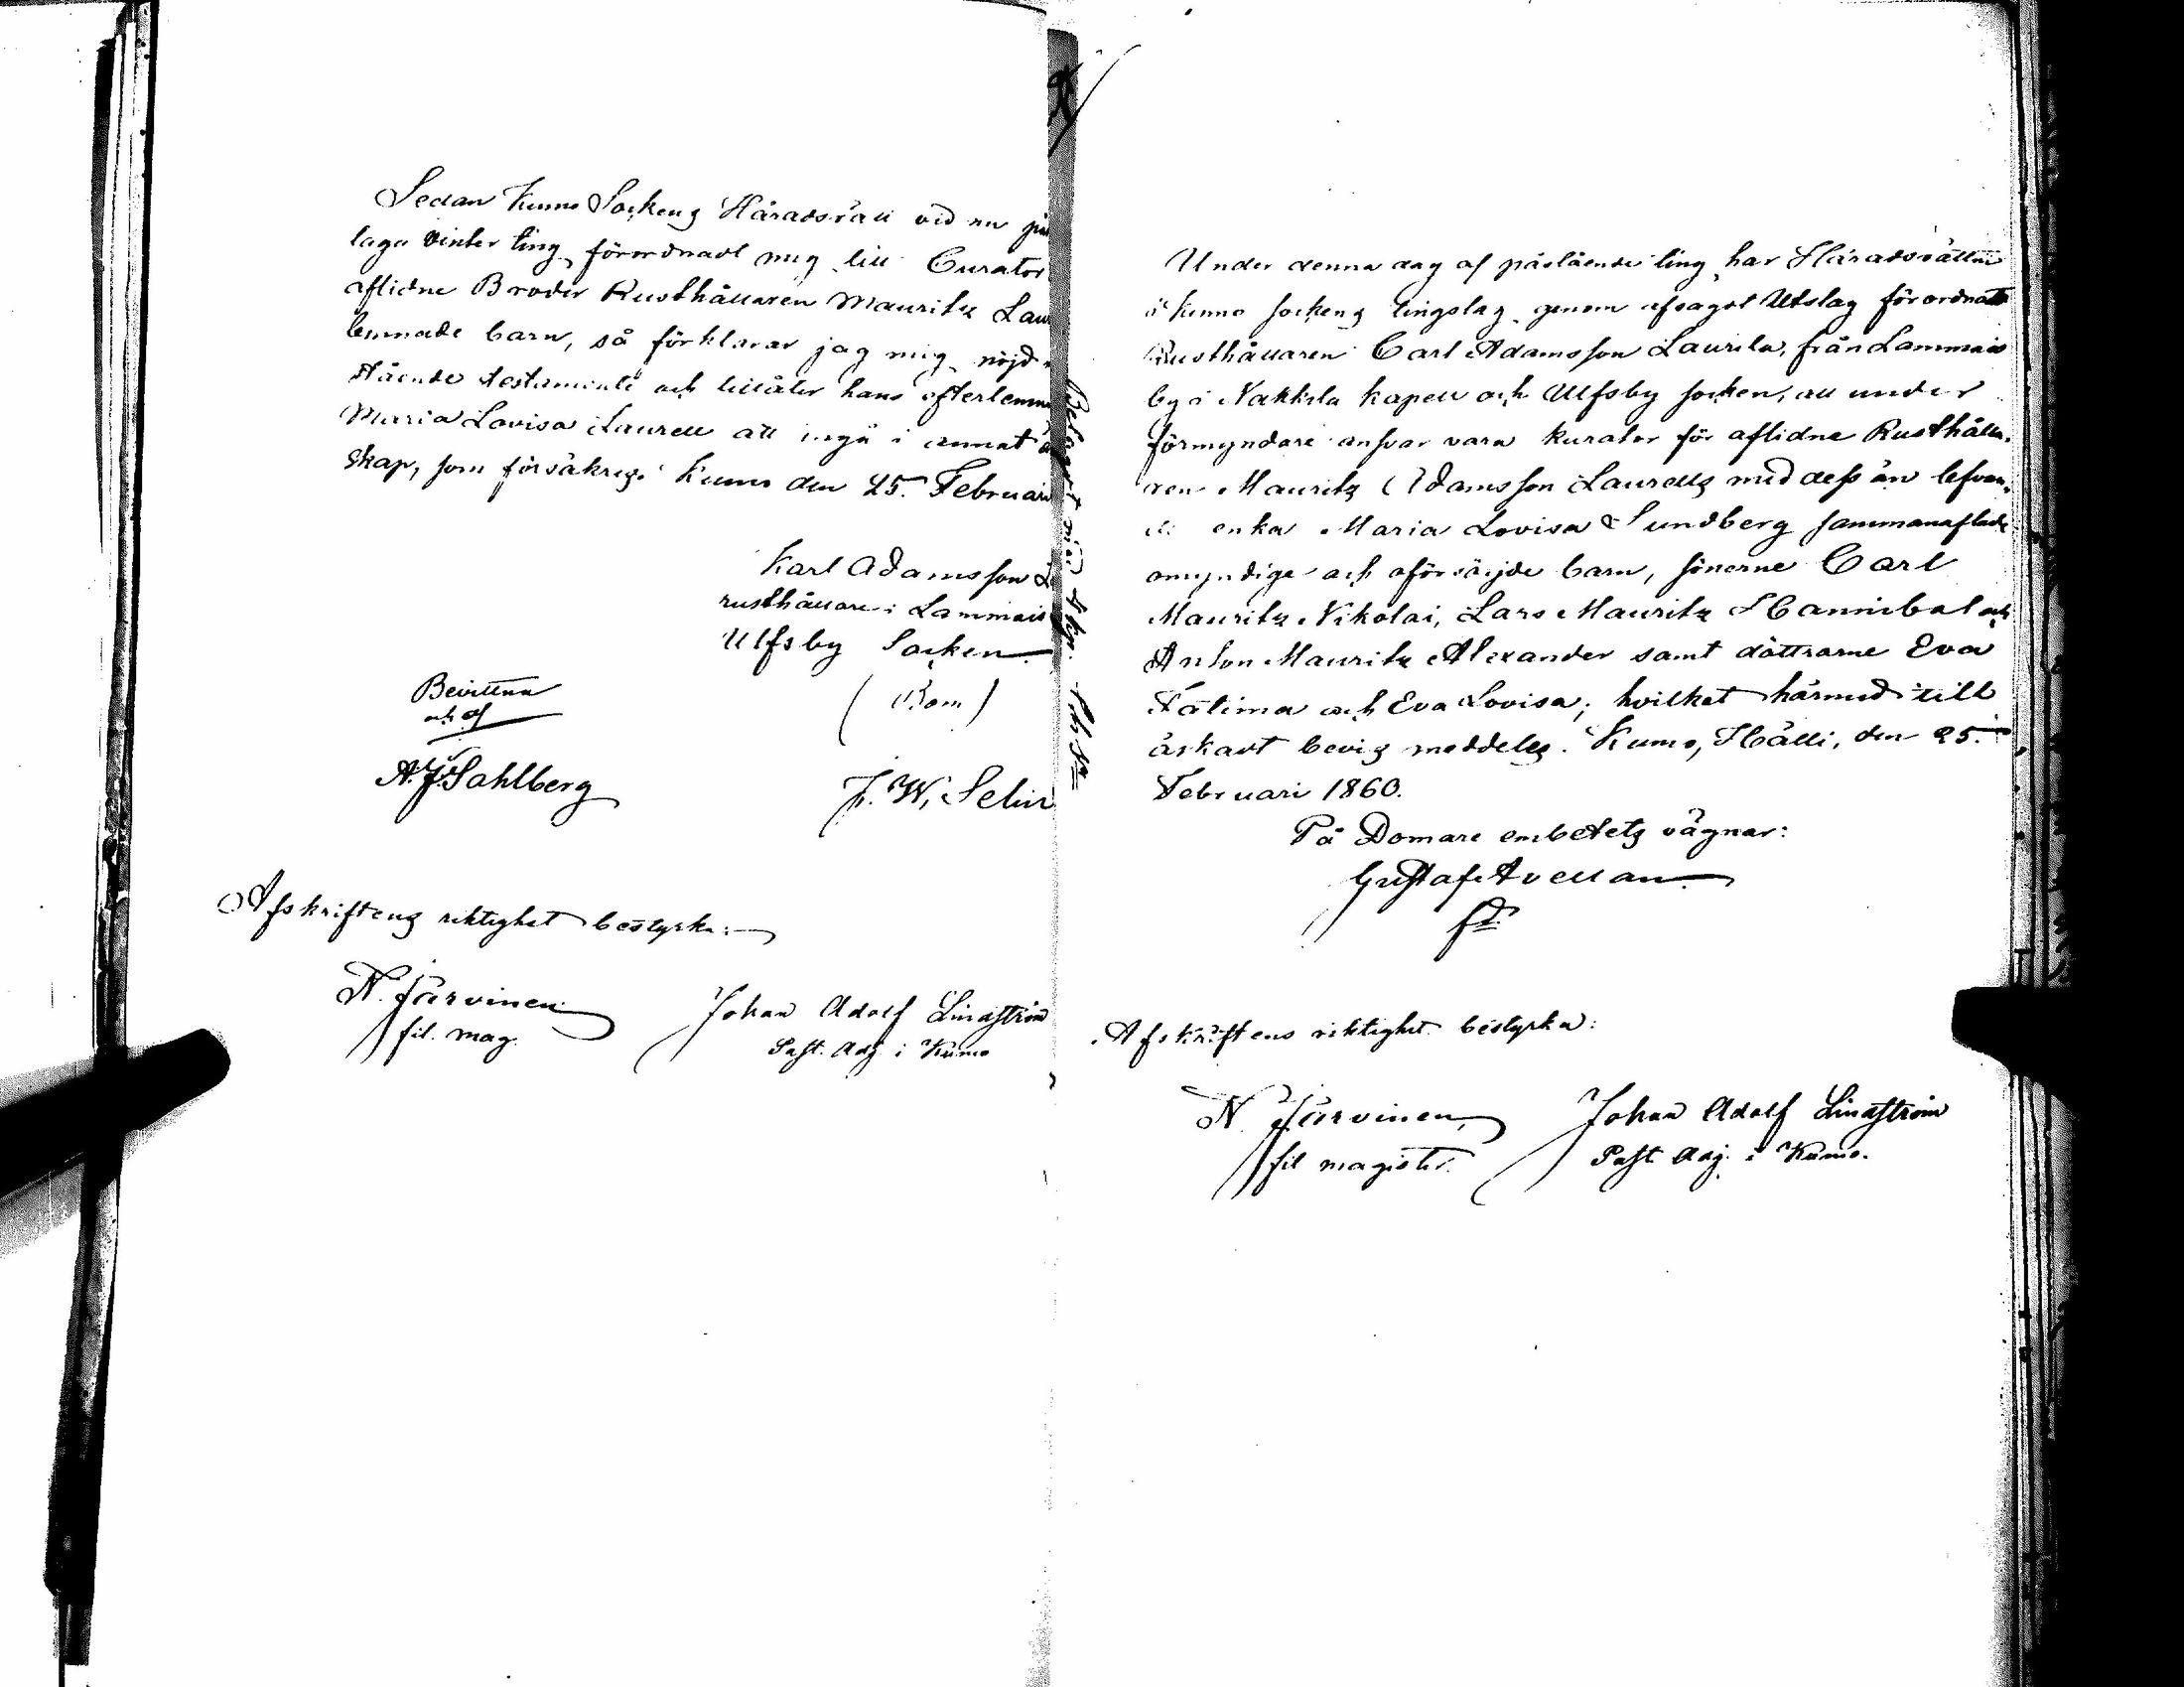 Sedan Kumo Sockens Häradsrätt vid nu på
laga Vinter ting förordnadt mig till Curator
aflidne Broder Rusthållaren Mauritz Lau
lemnade barn, så förklarar jag mig nöjd
stående testamente och tillåter hans efterlemn
Maria Lovisa Laurell att ingå i annat ä
skap, som försäkras. Kumo den 25. Februari
Karl Adamsson L
rusthållare i Lammais
Ulfsby Socken.
Bevittna
(Bom)
A. F. Sahlberg
F. W. Selin
Afskriftens riktighet bestyrka:
N. Järvinen
fil. mag.
Johan Adolf Lindström
Past. Adj. i Kumo
Under denna dag af påstående ting har Häradsrätten
i Kumo Sockens tingslag genom afsagdt Utslag förordnatt
Rusthållaren Carl Adamsson Laurila, från Lammais
by i Nakkila kapell och Ulfsby socken, att under
förmyndare ansvar vara kurator för aflidne Rusthålla-
ren Mauritz Adamsson Laurells med dess än lefvan-
de enka Maria Lovisa Sundberg sammanaflade
omyndige och oförsörjde barn, sönerne Carl
Mauritz Nikolai, Lars Mauritz Hannibal och
Anton Mauritz Alexander samt döttrarne Eva
Fatima och Eva Lovisa; hvilket härmed till
äskadt bevis meddeles. Kumo, Hälli, den 25.
Februari 1860.
På Domare embetets vägnar:
Gustaf Avellan.
Afskriftens riktighet bestyrka:
N. Järvinen,
fil magister.
Johan Adolf Lindström
Past. Adj. i Kumo.